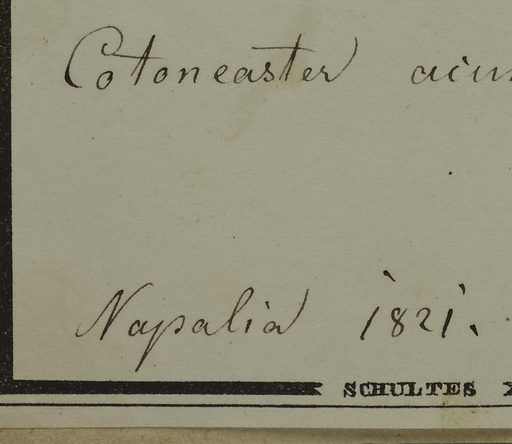 Cotoneaster acu
Napalia 1821.
SCHULTES